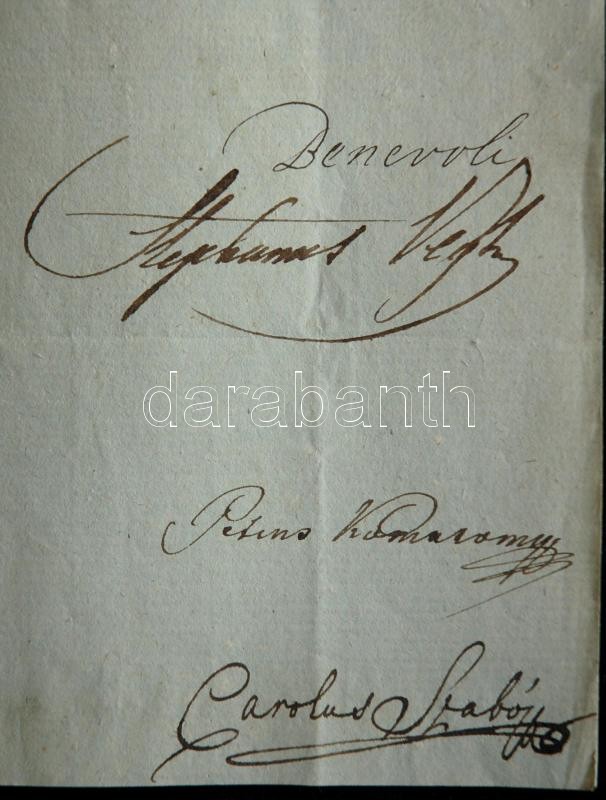 Benevoli
Stephanus Vegh
darabanth
Petrus Komaromy
Carolus Szabó